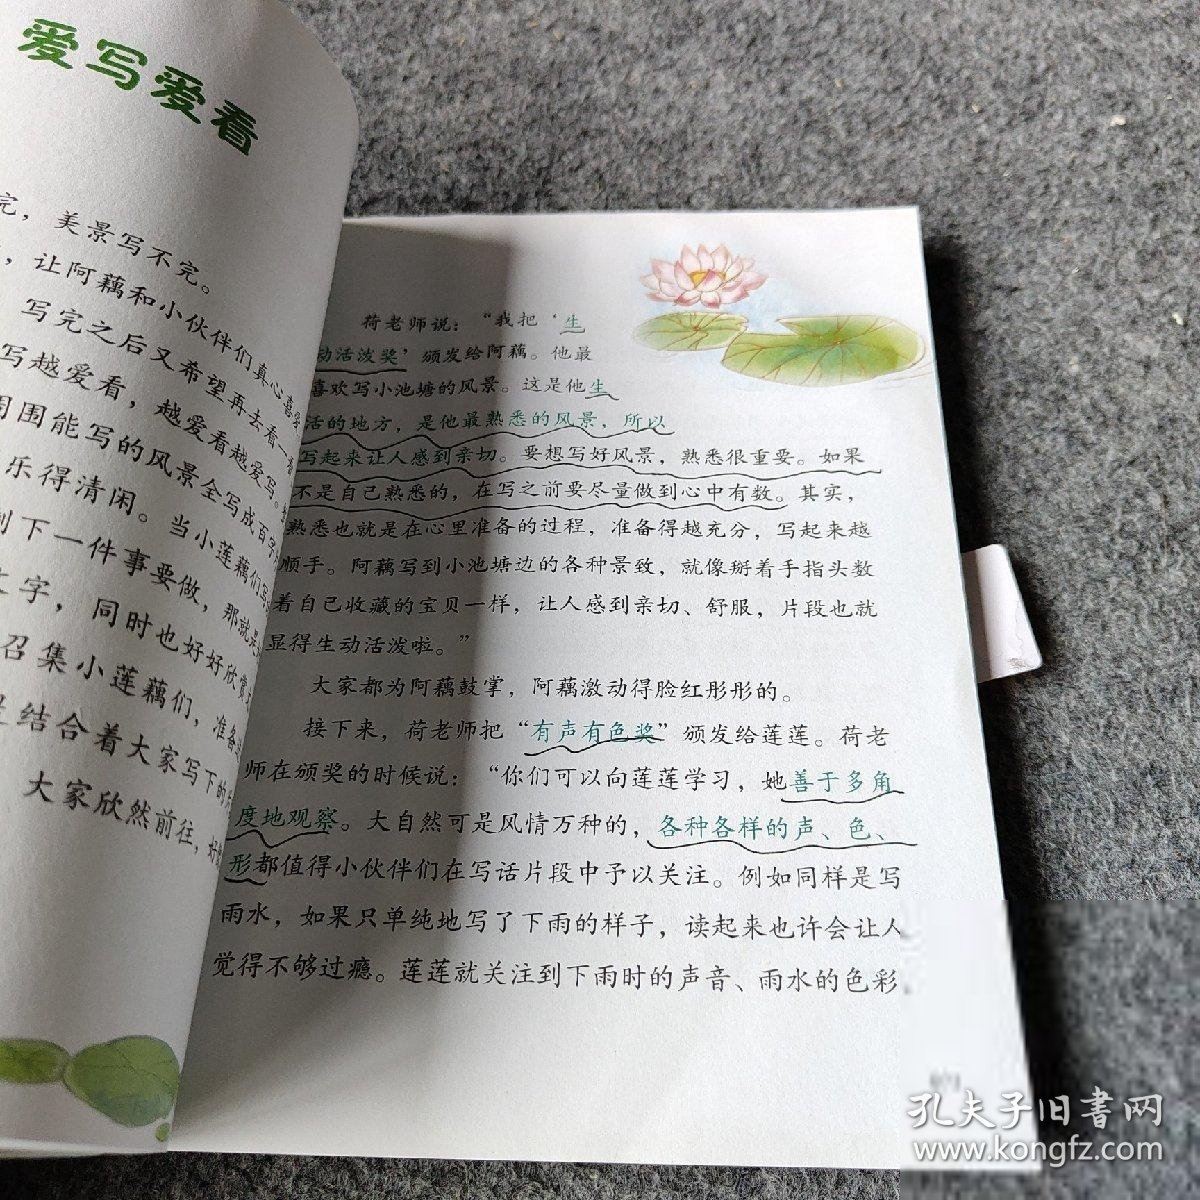 爱写爱看
完，美景写不完。
，让阿藕和小伙伴们真心喜
写完之后又希望再去看一看
写越爱看，越爱看越爱写。
周围能写的风景全写成百字
乐得清闲。当小莲藕们
剩下一件事要做，那就是
文字，同时也好好欣赏
召集小莲藕们，准备
结合着大家写下的
大家欣然前往，好
荷老师说：“我把‘生
动活泼奖’颁发给阿藕。他最
喜欢写小池塘的风景。这是他生
活的地方，是他最熟悉的风景，所以
写起来让人感到亲切。要想写好风景，熟悉很重要。如果
不是自己熟悉的，在写之前要尽量做到心中有数。其实，
熟悉也就是在心里准备的过程，准备得越充分，写起来越
顺手。阿藕写到小池塘边的各种景致，就像掰着手指头数
着自己收藏的宝贝一样，让人感到亲切、舒服，片段也就
显得生动活泼啦。”
大家都为阿藕鼓掌，阿藕激动得脸红彤彤的。
接下来，荷老师把“有声有色奖”颁发给莲莲。荷老
师在颁奖的时候说：“你们可以向莲莲学习，她善于多角
度地观察。大自然可是风情万种的，各种各样的声、色、
形都值得小伙伴们在写话片段中予以关注。例如同样是写
雨水，如果只单纯地写了下雨的样子，读起来也许会让人
觉得不够过瘾。莲莲就关注到下雨时的声音、雨水的色彩
孔夫子旧书网
www.kongfz.com